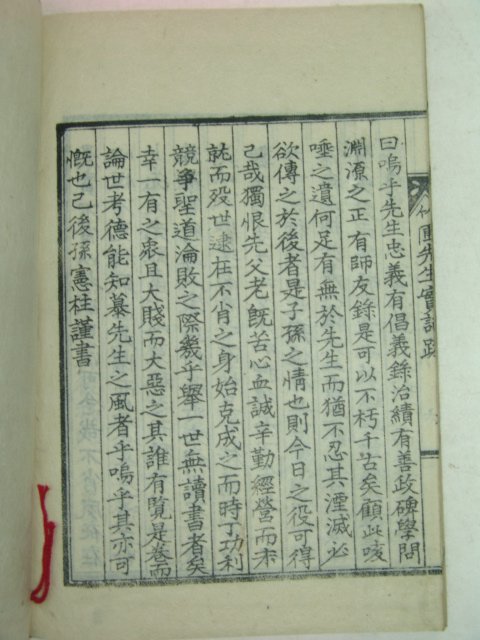 先生實記跋
曰嗚乎先生忠義有倡義錄治績有善政碑學問
淵源之正有師友錄是可以不朽千古矣顧此咳
唾之遺何足有無於先生而猶不忍其湮滅必
欲傳之於後者是子孫之情也則今日之役可得
已哉獨恨先父老旣苦心血誠辛勤經營而未
就而歿世逮在不肖之身始克成之而時丁功利
競爭聖道淪敗之際幾乎舉一世無讀書者矣
幸一有之衆且大賤而大惡之其誰有覽是卷而
論世考德能知慕先生之風者乎嗚乎其亦可
慨也已後孫憲柱謹書